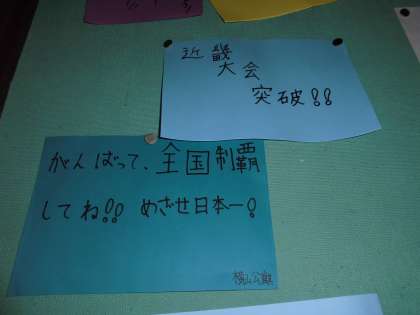 近畿
大会
突破!!
がんばって、全国制覇
してね!! めざせ日本一!